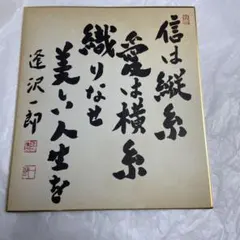 信は縦糸
愛は横糸
織りなせ
美しい人生を
逢沢一郎